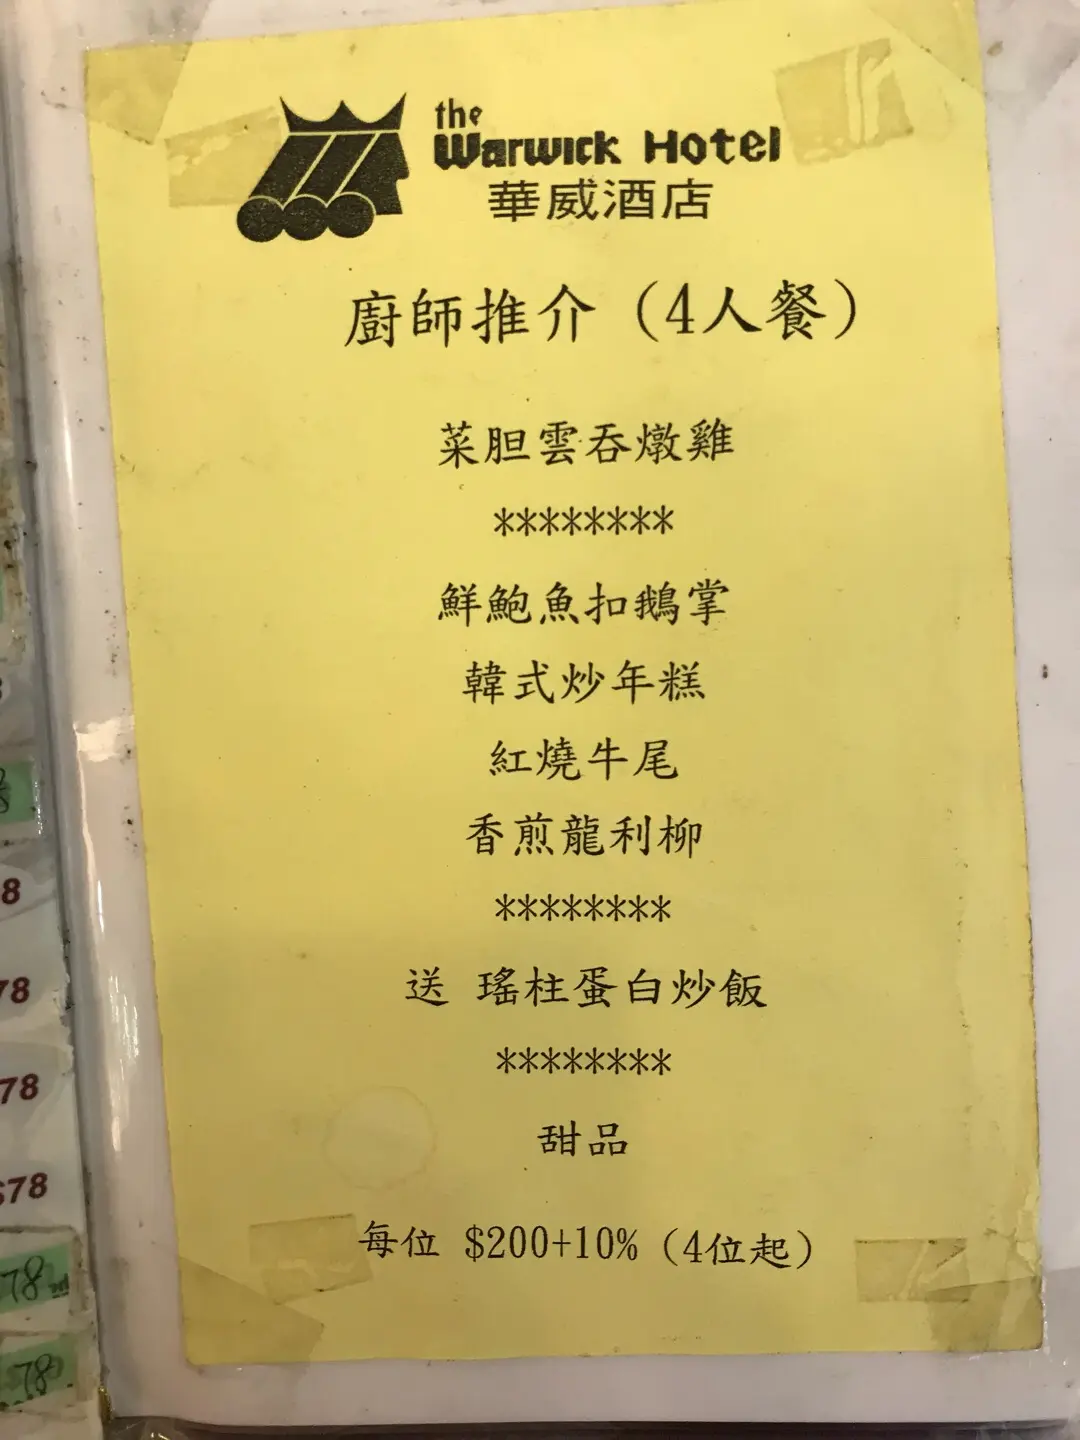 the
Warwick Hotel
華威酒店
廚師推介（4人餐）
菜胆雲吞燉雞
********
鮮鮑魚扣鵝掌
韓式炒年糕
紅燒牛尾
香煎龍利柳
********
送 瑤柱蛋白炒飯
********
甜品
每位 $200+10%（4位起）
8
78
78
$78
78
78